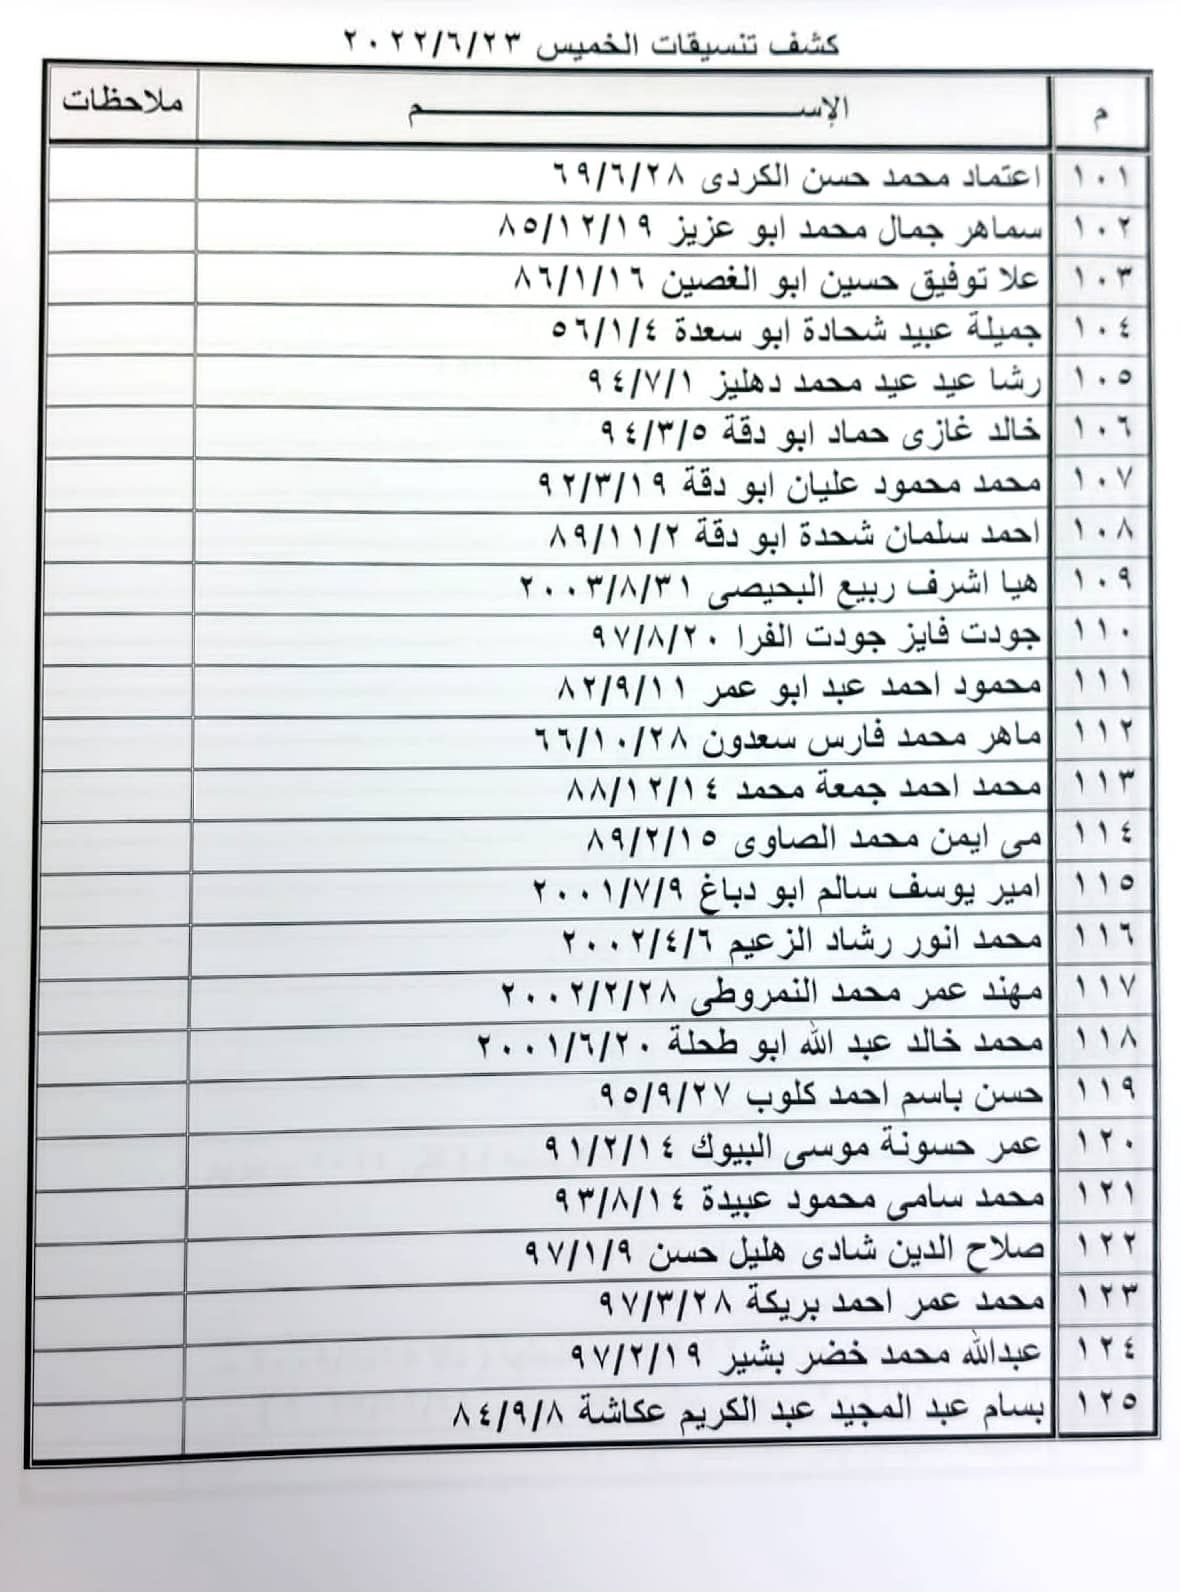 كشف تنسيقات الخميس ٢٠٢٢/٦/٢٣
م الإســــــــم ملاحظات
١٠١ اعتماد محمد حسن الكردى ٦٩/٦/٢٨
١٠٢ سماهر جمال محمد ابو عزيز ٨٥/١٢/١٩
١٠٣ علا توفيق حسين ابو الغصين ٨٦/١/١٦
١٠٤ جميلة عبيد شحادة ابو سعدة ٥٦/١/٤
١٠٥ رشا عيد عيد محمد دهليز ٩٤/٧/١
١٠٦ خالد غازى حماد ابو دقة ٩٤/٣/٥
١٠٧ محمد محمود عليان ابو دقة ٩٢/٣/١٩
١٠٨ احمد سلمان شحدة ابو دقة ٨٩/١١/٢
١٠٩ هيا اشرف ربيع البحيصى ٢٠٠٣/٨/٣١
١١٠ جودت فايز جودت الفرا ٩٧/٨/٢٠
١١١ محمود احمد عبد ابو عمر ٨٢/٩/١١
١١٢ ماهر محمد فارس سعدون ٦٦/١٠/٢٨
١١٣ محمد احمد جمعة محمد ٨٨/١٢/١٤
١١٤ مى ايمن محمد الصاوى ٨٩/٢/١٥
١١٥ امير يوسف سالم ابو دباغ ٢٠٠١/٧/٩
١١٦ محمد انور رشاد الزعيم ٢٠٠٢/٤/٦
١١٧ مهند عمر محمد النمروطى ٢٠٠٢/٢/٢٨
١١٨ محمد خالد عبد الله ابو طحلة ٢٠٠١/٦/٢٠
١١٩ حسن باسم احمد كلوب ٩٥/٩/٢٧
١٢٠ عمر حسونة موسى البيوك ٩١/٢/١٤
١٢١ محمد سامى محمود عبيدة ٩٣/٨/١٤
١٢٢ صلاح الدين شادى هليل حسن ٩٧/١/٩
١٢٣ محمد عمر احمد بريكة ٩٧/٣/٢٨
١٢٤ عبدالله محمد خضر بشير ٩٧/٢/١٩
١٢٥ بسام عبد المجيد عبد الكريم عكاشة ٨٤/٩/٨